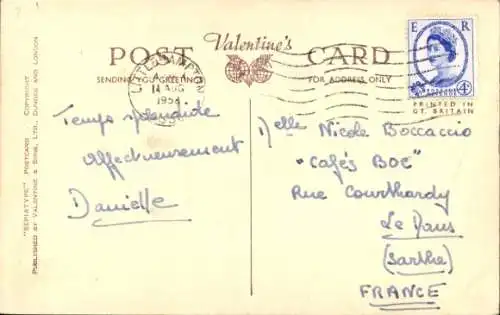 POST Valentine's CARD
SENDING YOU GREETINGS FOR ADDRESS ONLY
LITTLEHAMPTON
14 AUG
1958
E R
POSTAGE REVENUE
4D
PRINTED IN
GT. BRITAIN
Temps splendide
Affectueusement
Danielle
Melle Nicole Boccaccio
"Cafés BOC"
Rue Courthardy
Le Mans
(Sarthe)
FRANCE
"SEPIATYPE" POSTCARD COPYRIGHT
PUBLISHED BY VALENTINE & SONS, LTD., DUNDEE AND LONDON